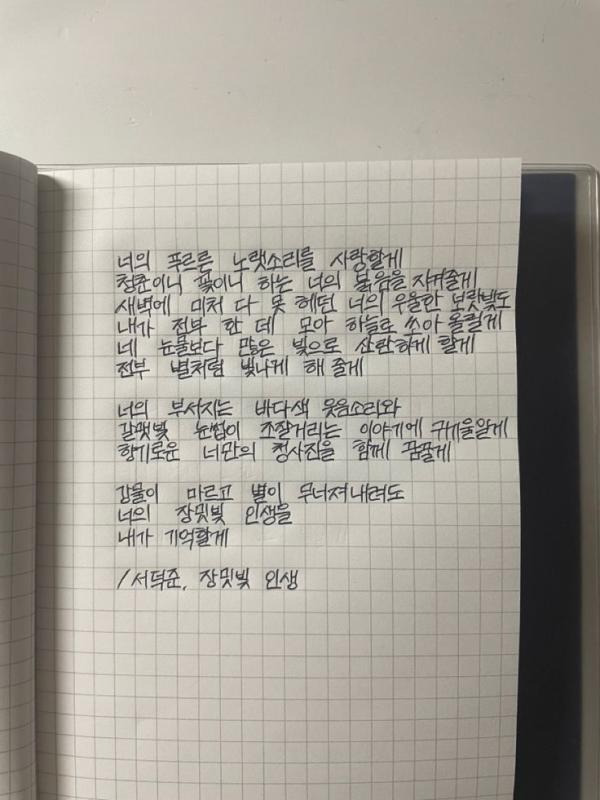 너의 푸르른 노랫소리를 사랑할게
청춘이니 꽃이니 하는 너의 붉음을 지켜줄게
새벽에 미처 다 못 헤던 너의 우울한 보랏빛도
내가 전부 한 데 모아 하늘로 쏘아 올릴게
네 눈물보다 많은 빛으로 산란하게 할게
전부 별처럼 빛나게 해 줄게
너의 부서지는 바다색 웃음소리와
갈맷빛 눈썹이 조잘거리는 이야기에 귀 기울일게
향기로운 너만의 청사진을 함께 꿈꿀게
강물이 마르고 별이 무너져 내려도
너의 장밋빛 인생을
내가 기억할게
/서덕준, 장밋빛 인생